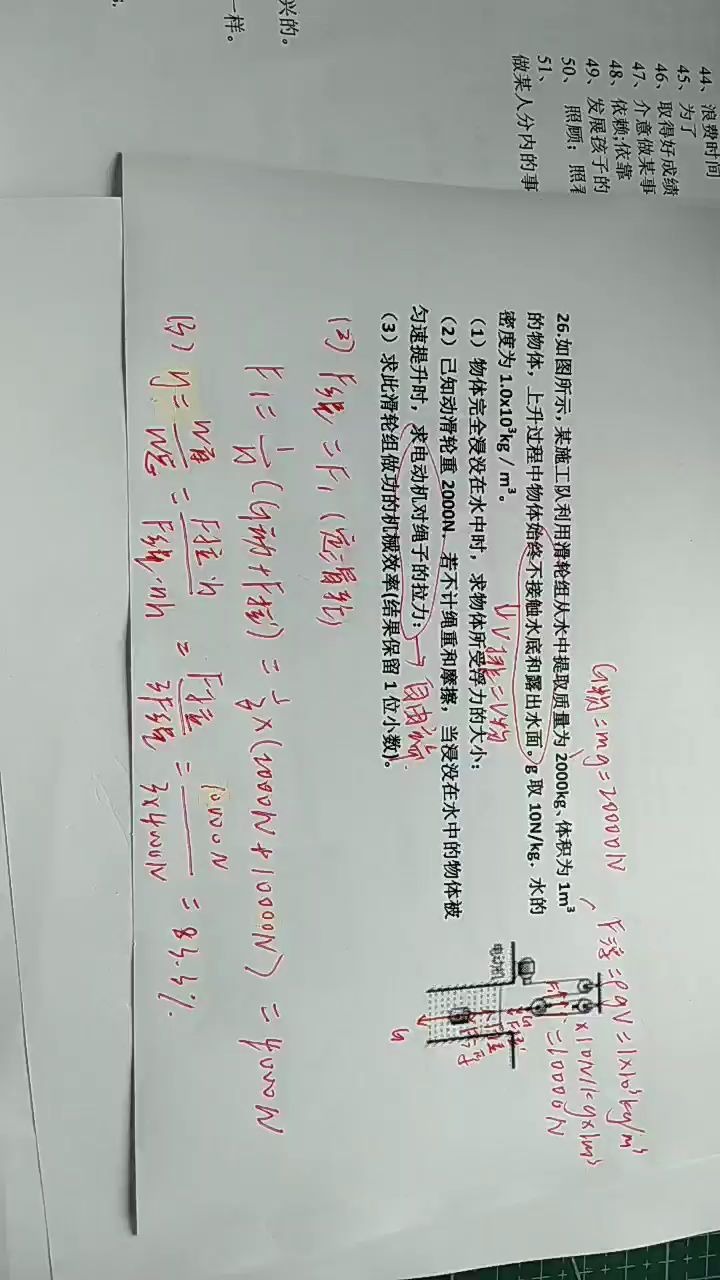 44、浪费时间
45、为了
46、取得好成绩
47、介意做某事
48、依赖;依靠
49、发展孩子的
50、照顾；照看
51、
做某人分内的事
兴的。
一样。
G物=mg=20000N
F浮=ρgV=1×10³kg/m³
×10N/kg×1m³
=10000N
26.如图所示，某施工队利用滑轮组从水中提取质量为 2000kg、体积为 1m³
的物体，上升过程中物体始终不接触水底和露出水面。g 取 10N/kg．水的
密度为 1.0x10³kg／m³。
V排=V物
（1）物体完全浸没在水中时，求物体所受浮力的大小；
（2）已知动滑轮重 2000N．若不计绳重和摩擦，当浸没在水中的物体被
匀速提升时，求电动机对绳子的拉力；
→自由端
（3）求此滑轮组做功的机械效率(结果保留 1 位小数)。
电动机
F浮
G
(2) F绳=F1 (定滑轮)
F1=1/n(G动+F拉)=1/3×(2000N+10000N)=4000N
(3) η=W有/W总=F拉h/F绳·nh=F拉/3F绳=10000N/3×4000N=83.3%